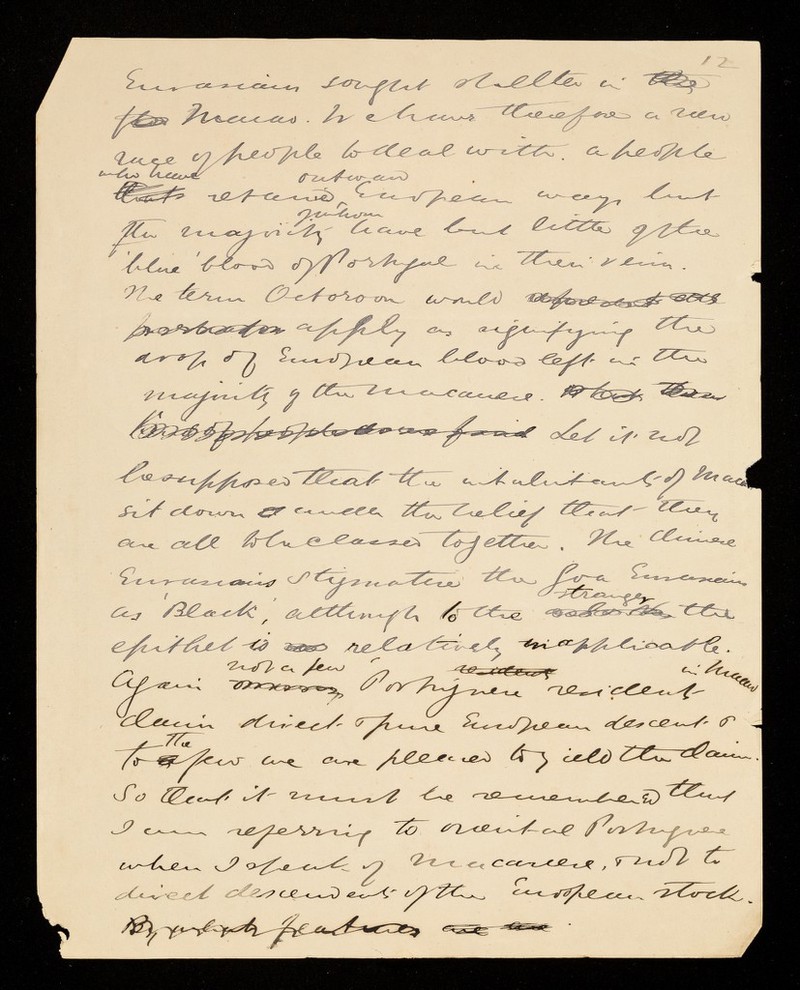 12
Eurasians sought shelter in the
the Macao. We have therefore a new
race of people to deal with. a people
who have outward
that retained, European ways but
in whom
the majority have but little of the
'blue' blood of Portugal in their veins.
The term Octoroon would
apply as signifying the
drop of European blood left in the
majority of the Macanese.
Let it not
be supposed that the inhabitants of Macao
sit down under the belief that they
are all to be classed together. The Chinese
Eurasians stigmatise the Goa Eurasians
stranger
as 'Black', although to the the
epithet is relatively inapplicable.
not a few resident in Macao
Again Portuguese residents
claim direct & pure European descent &
the
to a few we are pleased to yield the claim.
So that it must be remembered that
I am referring to oriental Portuguese
when I speak of Macanese, & not to
direct descendents of the European stock.
features are